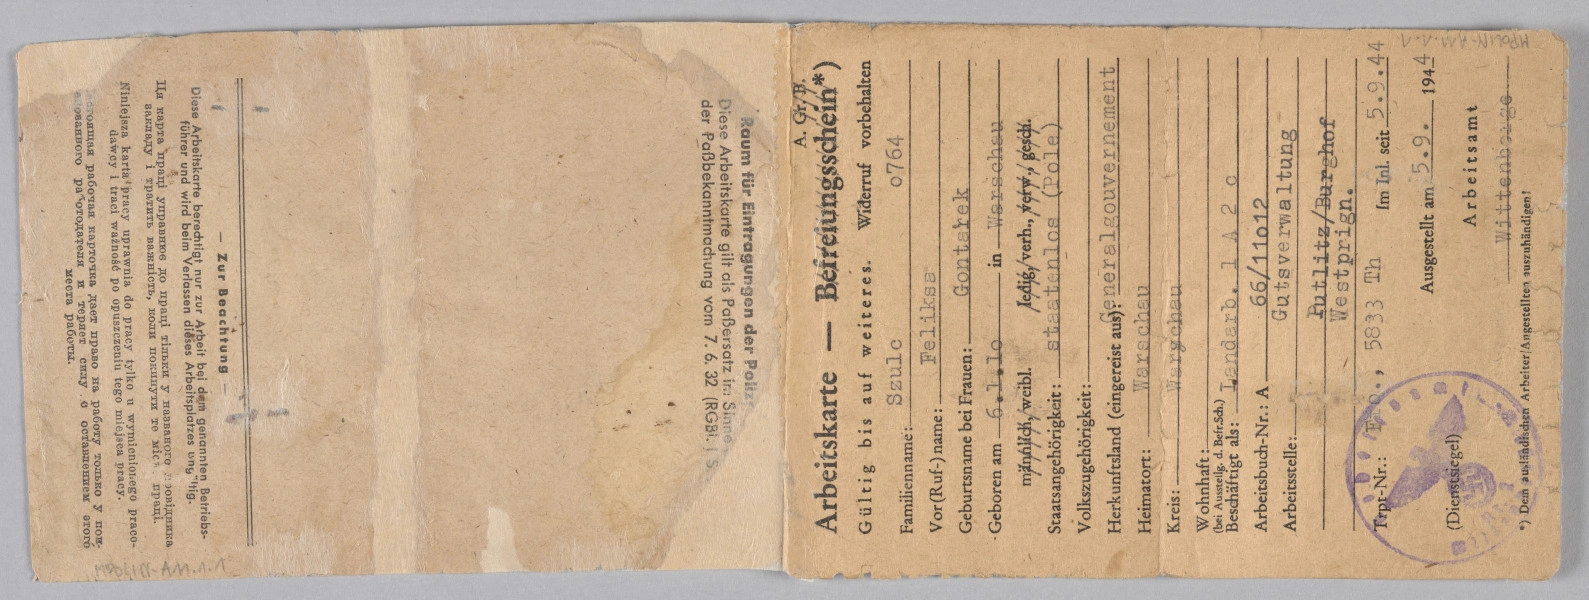 A. Gr./B.
Arbeitskarte — Befreiungsschein*)
Gültig bis auf weiteres. Widerruf vorbehalten
Familienname: Szulc o764
Vor(Ruf-)name: Feliksa
Geburtsname bei Frauen: Gontarek
Geboren am 6.1.1o in Warschau
männlich/weibl. ledig/verh., verw., gesch.
Staatsangehörigkeit: staatenlos (Pole)
Volkszugehörigkeit:
Herkunftsland (eingereist aus): Generalgouvernement
Heimatort: Warschau
Kreis: Warschau
Wohnhaft:
(bei Ausstellg. d. Befr.Sch.)
Beschäftigt als: Landarb. 1 A 2 c
Arbeitsbuch-Nr.: A 66/11o12
Arbeitsstelle: Gutsverwaltung
Putlitz/Burghof
Westprign.
Trpt-Nr.: 5833 Th Im Inl. seit 5.9.44
Ausgestellt am 5.9. 1944
Arbeitsamt
(Dienstsiegel) Wittenberge
*) Dem ausländischen Arbeiter/Angestellten auszuhändigen!
MPOLIN-A11.1.1
Raum für Eintragungen der Polizei
Diese Arbeitskarte gilt als Paßersatz im Sinne
der Paßbekanntmachung vom 7. 6. 32 (RGBl. I S.
— Zur Beachtung —
Diese Arbeitskarte berechtigt nur zur Arbeit bei dem genannten Betriebs-
führer und wird beim Verlassen dieses Arbeitsplatzes ungültig.
Ця карта праці управнює до праці тільки у названого провідника
закладу і тратить важність, коли покинути те місце праці.
Niniejsza karta pracy uprawnia do pracy tylko u wymienionego praco-
dawcy i traci ważność po opuszczeniu tego miejsca pracy.
Настоящая рабочая карточка дает право на работу только у пои-
менованного работодателя и теряет силу с оставлением этого
места работы.
MPOLIN-A11.1.1